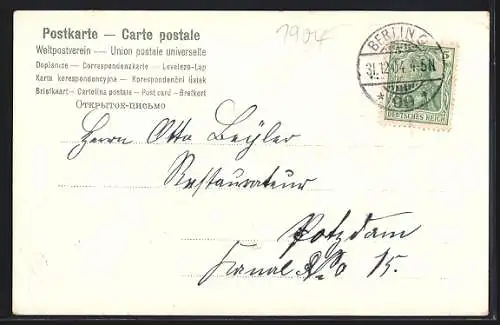 Postkarte — Carte postale
Weltpostverein — Union postale universelle
Dopisnice — Correspondenzkarte — Levelező-Lap
Karta korespondencyjna — Korespondenční lístek
Briefkaart — Cartolina postale — Post card — Brefkort
ОТКРЫТОЕ-ПИСЬМО
1904
BERLIN C.
31.12.04. 4-5N
* 99 *
DEUTSCHES REICH
Herrn Otto Beÿler
Restaurateur
Potzdam
Kanal No 15.